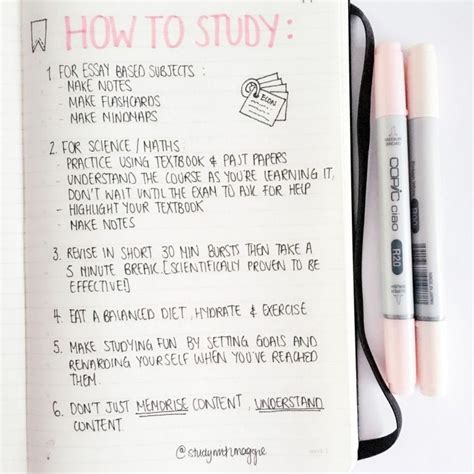 HOW TO STUDY:
1. FOR ESSAY BASED SUBJECTS :
- MAKE NOTES
- MAKE FLASHCARDS
- MAKE MINDMAPS
ECON
2. FOR SCIENCE / MATHS :
- PRACTICE USING TEXTBOOK & PAST PAPERS
- UNDERSTAND THE COURSE AS YOU'RE LEARNING IT,
DON'T WAIT UNTIL THE EXAM TO ASK FOR HELP
- HIGHLIGHT YOUR TEXTBOOK
- MAKE NOTES
3. REVISE IN SHORT 30 MIN BURSTS THEN TAKE A
5 MINUTE BREAK. [SCIENTIFICALLY PROVEN TO BE
EFFECTIVE!]
4. EAT A BALANCED DIET, HYDRATE & EXERCISE
5. MAKE STUDYING FUN BY SETTING GOALS AND
REWARDING YOURSELF WHEN YOU'VE REACHED
THEM.
6. DON'T JUST MEMORISE CONTENT, UNDERSTAND
CONTENT.
@studywithmaggie
COPIC ciao
R20